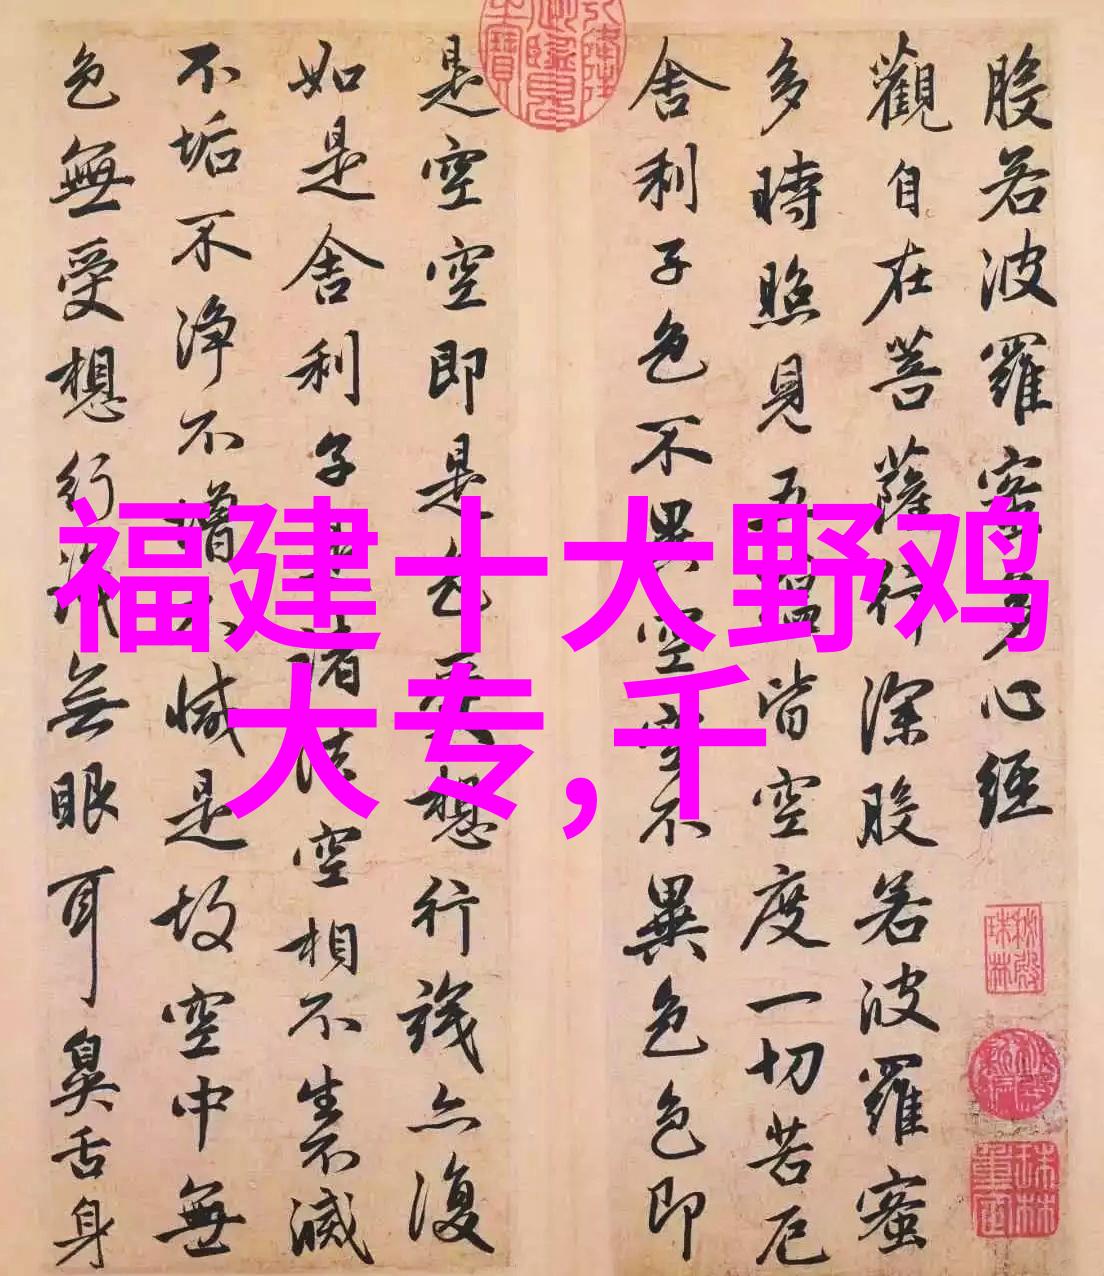 般若波羅蜜多心經
觀自在菩薩行深般若波羅蜜
多時照見五蘊皆空度一切苦厄
舍利子色不異空空不異色色即
是空空即是色受想行識亦復
如是舍利子是諸法空相不生不滅
不垢不淨不增不減是故空中無
色無受想行識無眼耳鼻舌身
福建十大野鸡
大专,千